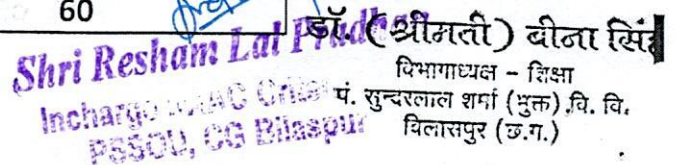 60
Shri Resham Lal Pradhan
Incharge NAAC
PSSOU, CG Bilaspur
डॉ. (श्रीमती) बीना सिंह
विभागाध्यक्ष - शिक्षा
पं. सुन्दरलाल शर्मा (मुक्त) .वि. वि.
बिलासपुर (छ.ग.)